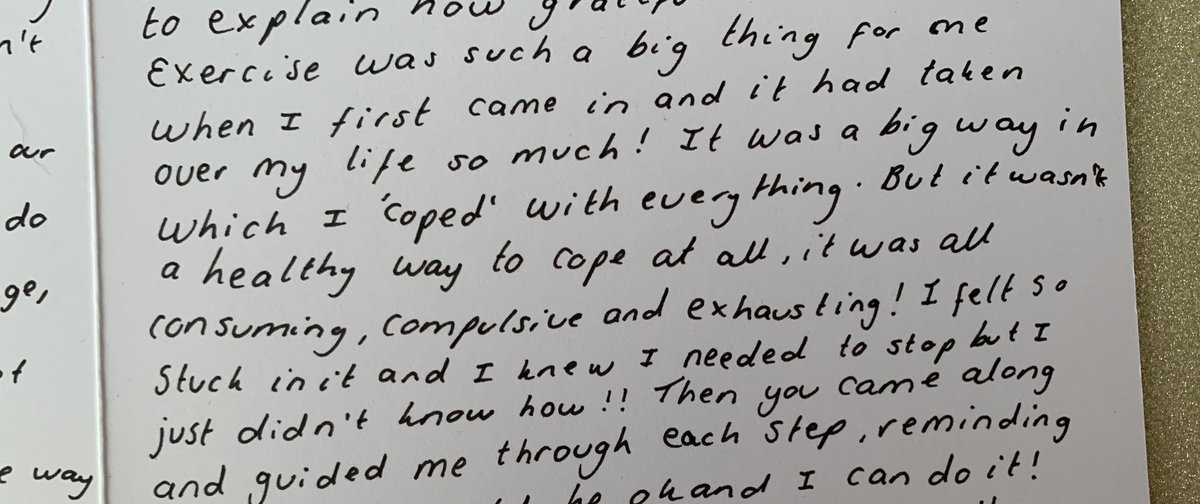 n't
our
do
ge,
of
e way
to explain how
Exercise was such a big thing for me
when I first came in and it had taken
over my life so much! It was a big way in
which I 'coped' with everything. But it wasn't
a healthy way to cope at all, it was all
consuming, compulsive and exhausting! I felt so
stuck in it and I knew I needed to stop but I
just didn't know how!! Then you came along
and guided me through each step, reminding
be ok and I can do it!